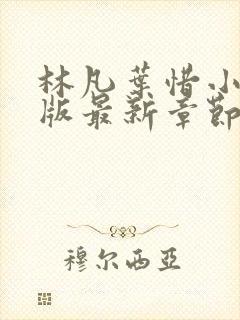 林凡葉惜小
版最新章節
穆尔西亚